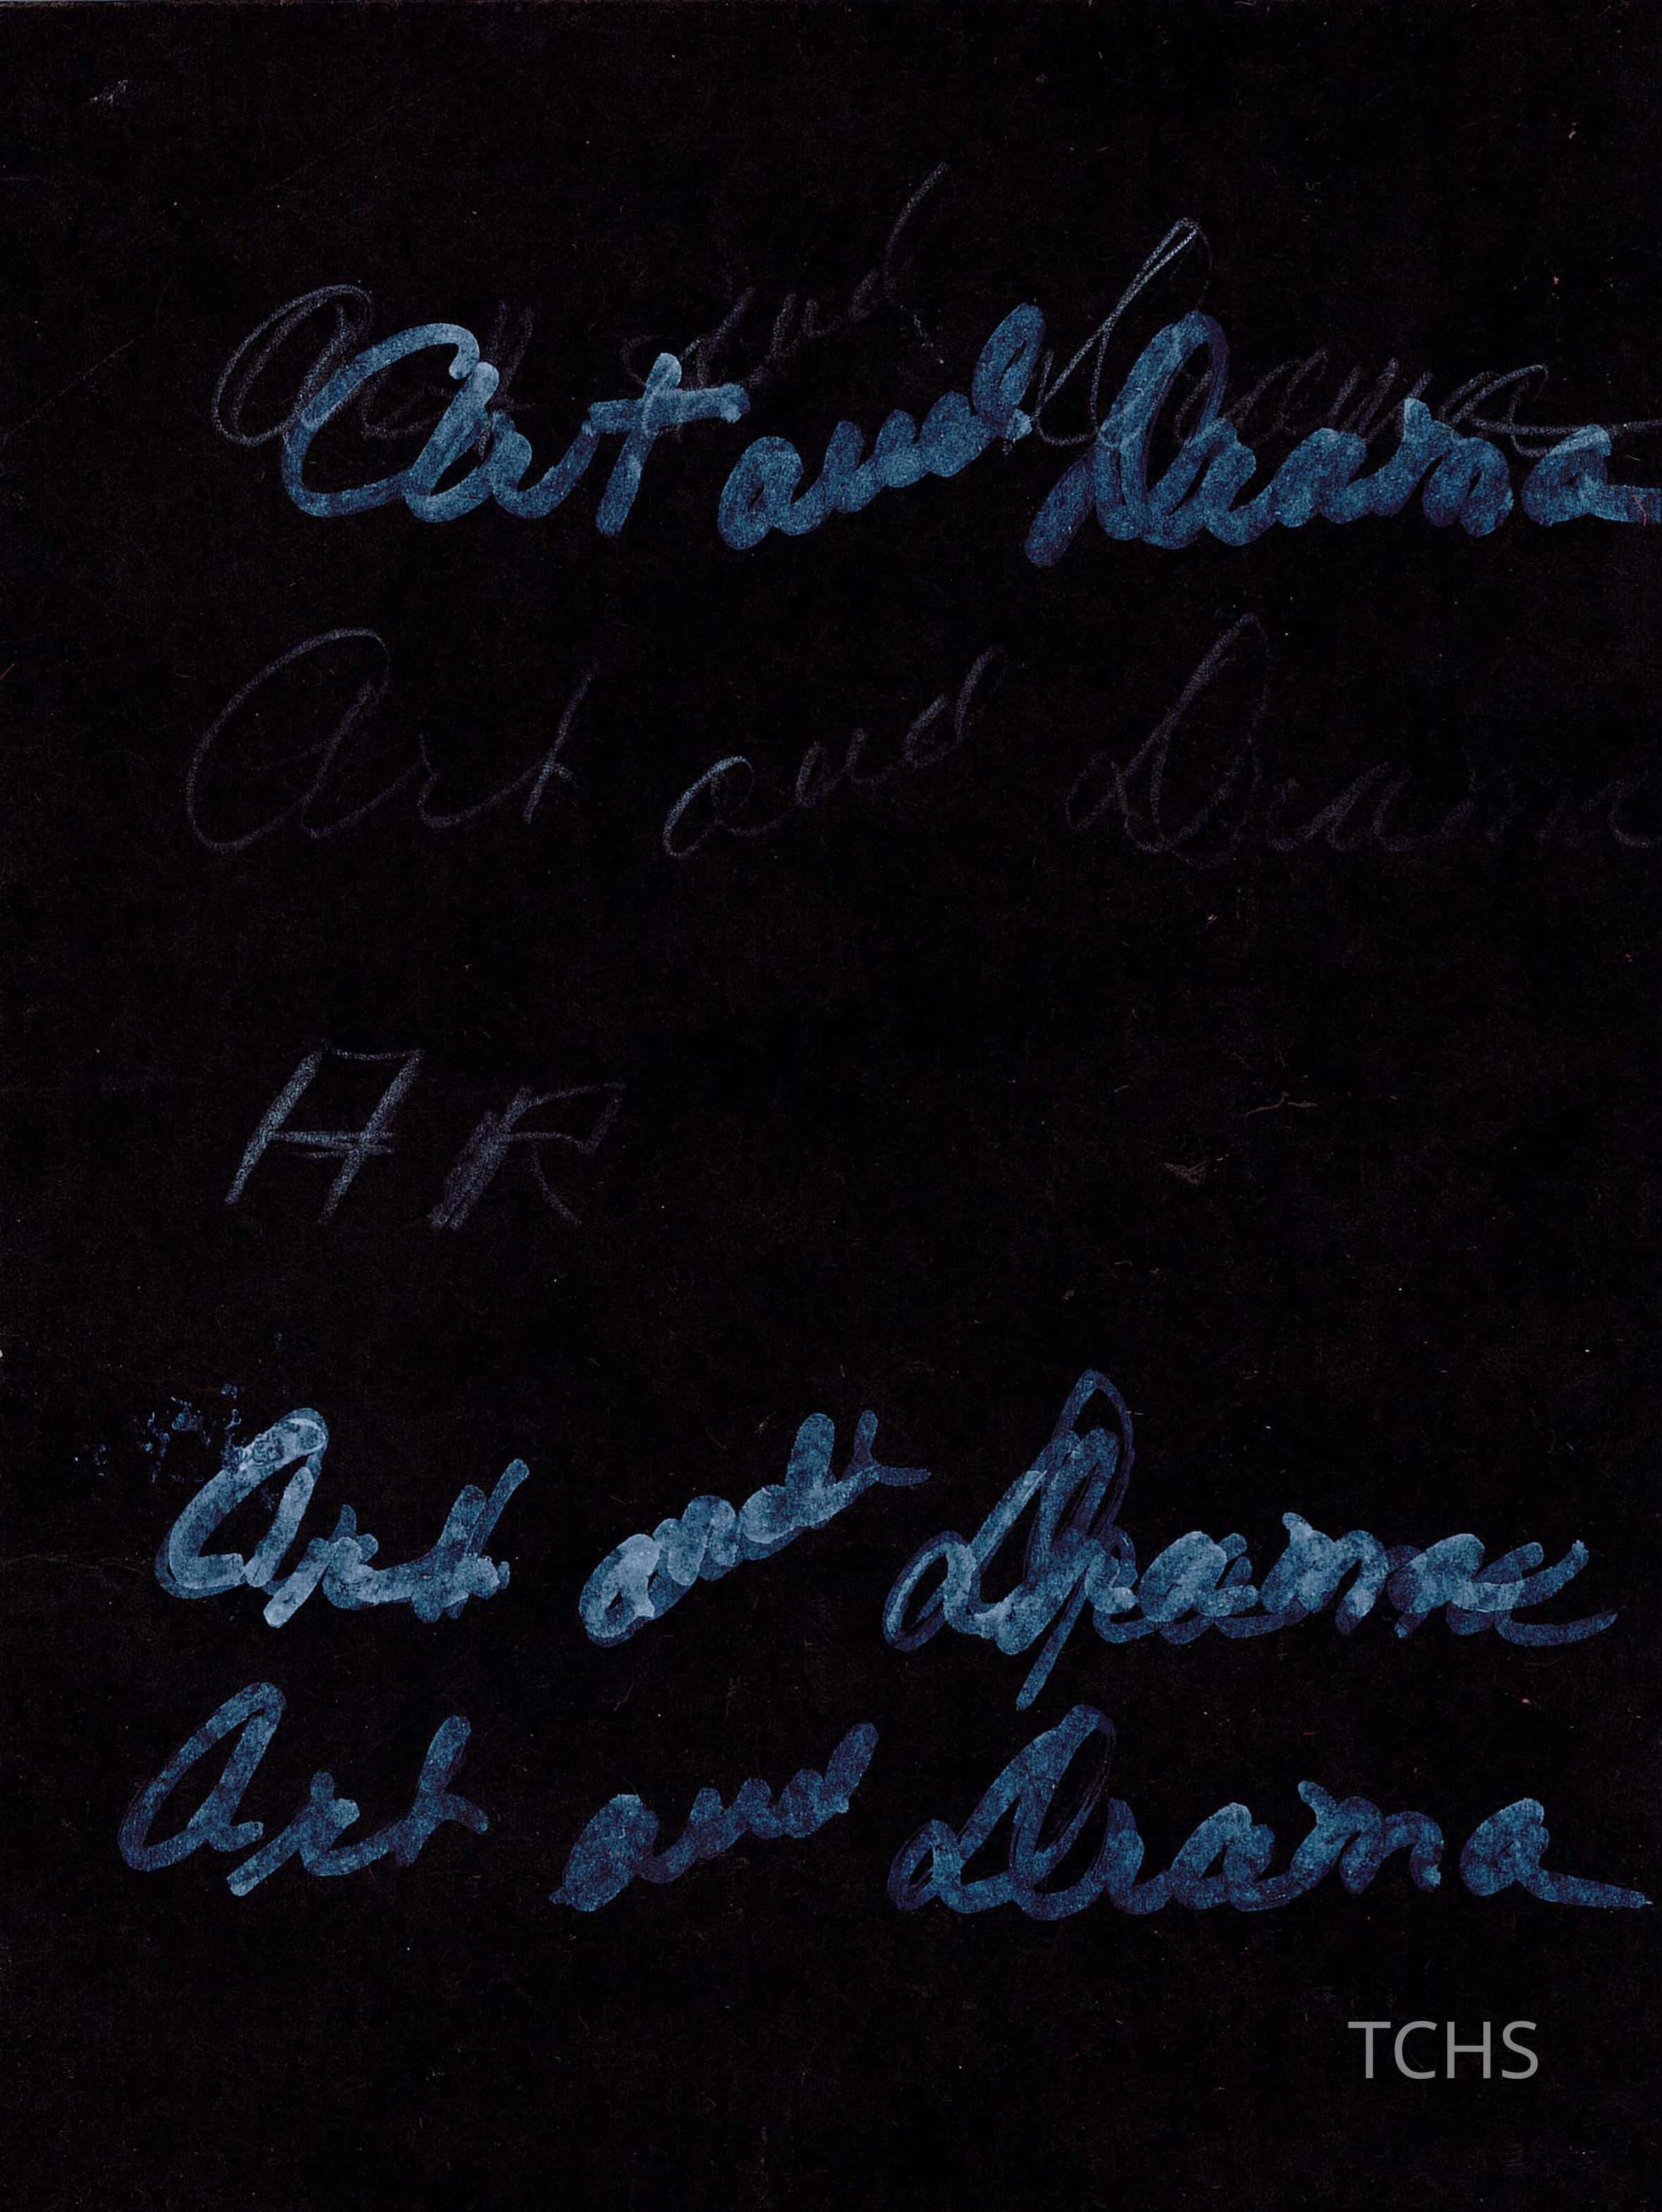 Art and Drama
Art and Drama
Art and Drama
AR
Art and Drama
Art and Drama
TCHS